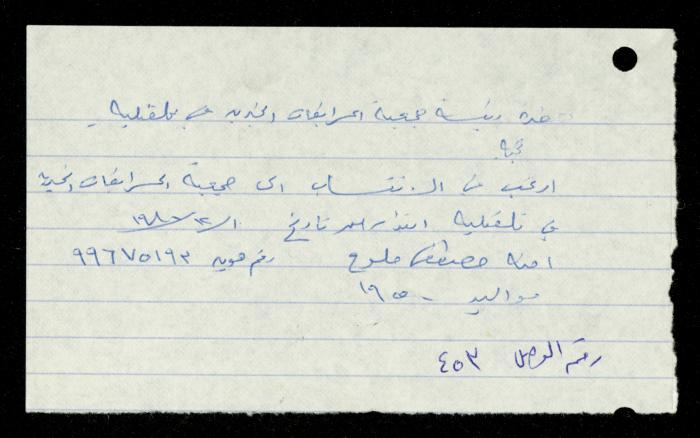 حضرة رئيسة جمعية المرابطات الخيرية في قلقيلية
تحية
ارغب في الانتساب الى جمعية المرابطات الخيرية
في قلقيلية ابتداء من تاريخ
امنه مصطفى ملوح رقم هوية ٩٩٦٧٥١٩٣
مواليد ١٩٥٠
رقم الوصل ٤٥٣